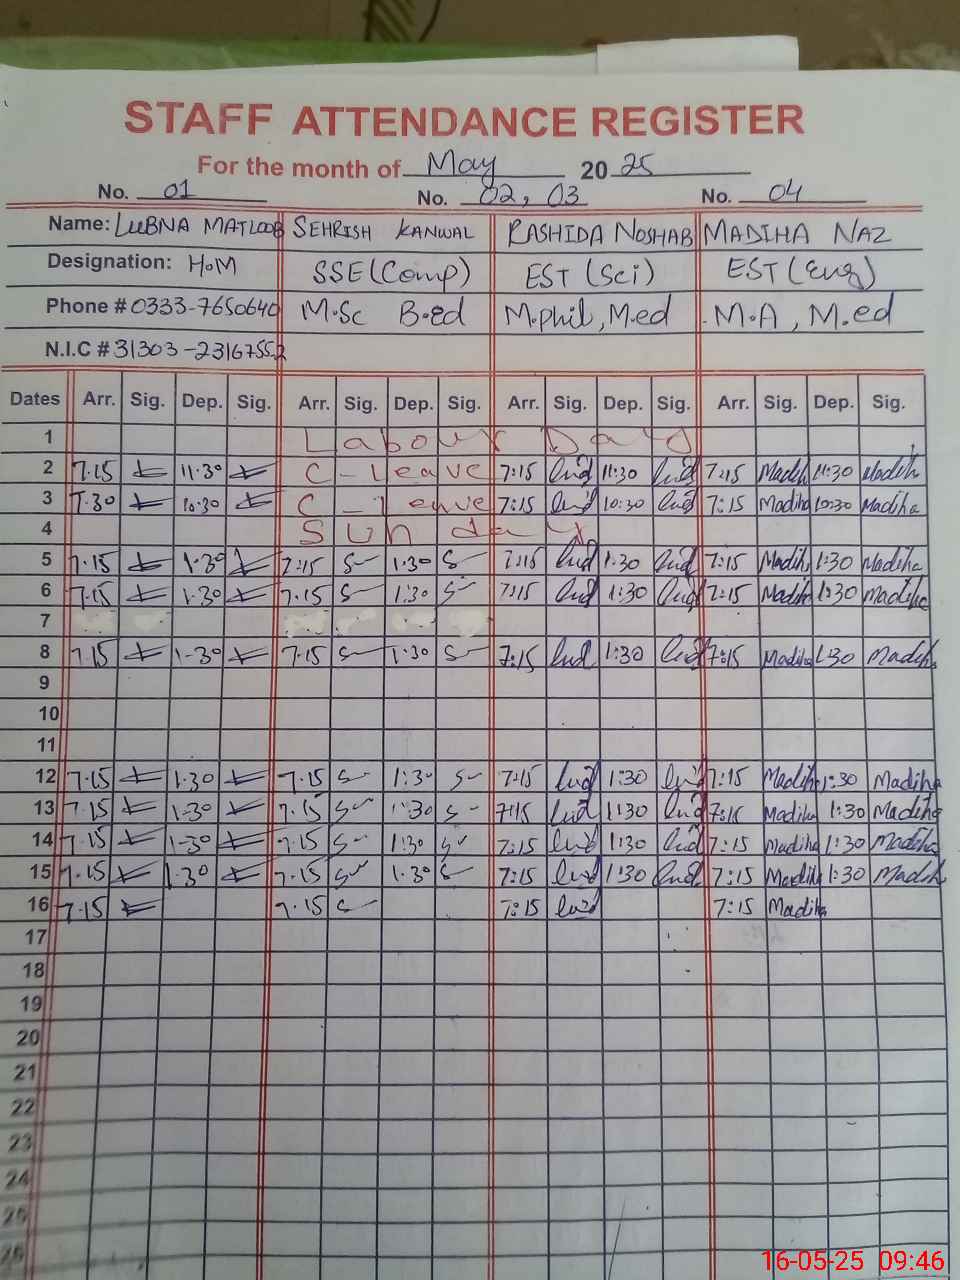 STAFF ATTENDANCE REGISTER
For the month of May 2025
No. 01 No. 02, 03 No. 04
Name: LUBNA MATLOOB SEHRISH KANWAL RASHIDA NOSHAB MADIHA NAZ
Designation: HOM SSE (Comp) EST (Sci) EST (Eng)
Phone # 0333-7650640 M.Sc B.ed M.phil, M.ed M.A, M.ed
N.I.C # 31303-23167552
Dates Arr. Sig. Dep. Sig. Arr. Sig. Dep. Sig. Arr. Sig. Dep. Sig. Arr. Sig. Dep. Sig.
1 Labour Day
2 7.15 11.30 C-leave 7:15 11:30 7:15 Madiha 11:30 Madiha
3 7.30 10.30 C-leave 7:15 10:30 7:15 Madiha 10:30 Madiha
4 Sunday
5 7.15 1.30 7:15 1.30 7:15 1:30 7:15 Madiha 1:30 Madiha
6 7.15 1.30 7.15 1:30 7:15 1:30 7:15 Madiha 1:30 Madiha
7
8 7.15 1-30 7.15 1:30 7:15 1:30 7:15 Madiha 1:30 Madiha
9
10
11
12 7.15 1.30 7.15 1:30 7:15 1:30 7:15 Madiha 1:30 Madiha
13 7.15 1-30 7.15 1:30 7:15 1:30 7:15 Madiha 1:30 Madiha
14 7.15 1-30 7.15 1:30 7:15 1:30 7:15 Madiha 1:30 Madiha
15 7.15 1.30 7.15 1.30 7:15 1:30 7:15 Madiha 1:30 Madiha
16 7.15 7.15 7:15 7:15 Madiha
17
18
19
20
21
22
23
24
25
26
16-05-25 09:46